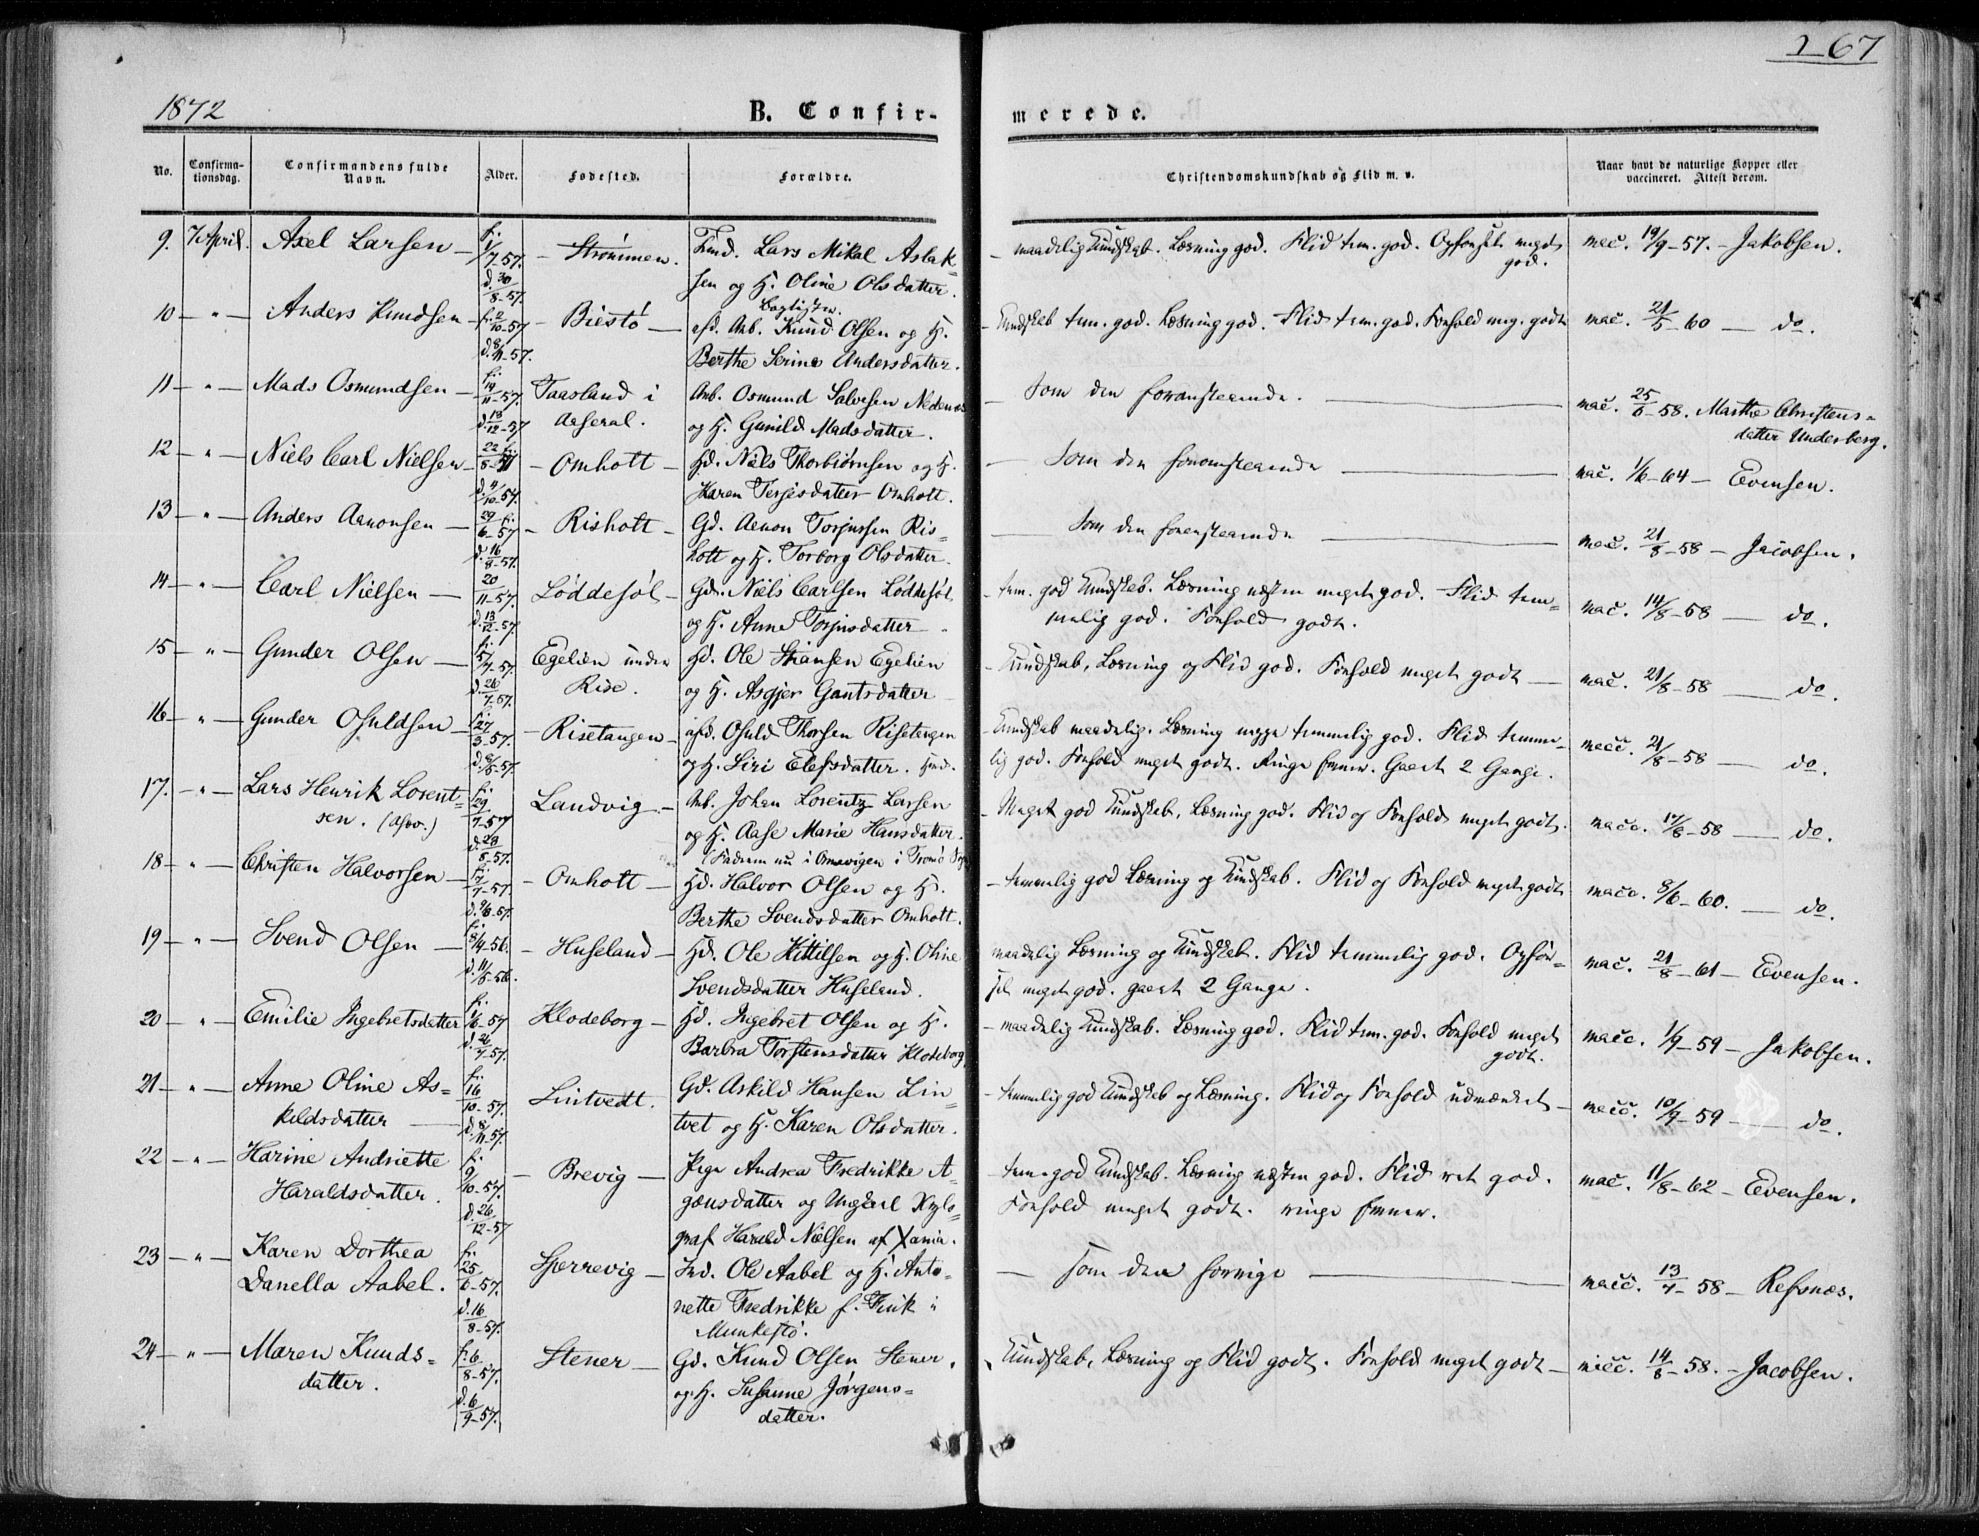 267
1872
B. Confir-
merede.
No.
Confirma-
tionsdag.
Confirmandens fulde
Navn.
Alder.
Fødested.
Forældre.
Christendomskundskab og Flid m. v.
Naar havt de naturlige Kopper eller
vaccineret. Attest derom.
9. 7 April. Axel Larsen – f. 1/7-57. d. 30/8-57. – Strømmen. Lars Mikal Aslak-
sen og H. Oline Olsdatter.
– maadelig Kundskab. Læsning god. Flid tem. god. Opførsel meget
god.
vac. 19/9-57. – Jakobsen.
10 – " – Anders Knudsen – f. 2/10-57 d. 8/11-57. – Biestø – afd. Arb. Knud Olsen og H.
Berthe Serine Andersdatter.
– Kundskab tem. god. Læsning god. Flid tem. god. Forhold meg. godt
vac. 21/5-60 – do.
11 – " – Mads Osmundsen – f. 19/11-57. d. 18/12-57 Taasland i
Aaseral.
Arb. Osmund Salvesen Nedenæs
og H. Gunild Madsdatter.
– Som den foranstaaende. –
vac. 25/6-58. Marthe Christens-
datter Underberg.
12 – " – Niels Carl Nielsen – d. 4/10-57. – Omholt – Hd. Niels Thorbiørnsen og H.
Karen Terjesdatter Omholt.
– Som den foranstaaende –
vac. 1/6-64 – Evensen.
13 – " – Anders Aanonsen – 29/6-57 d. 16/8-57. – Risholt – Gd. Aanon Torjussen Ris-
holt og H. Torborg Olsdatter.
– Som den foranstaaende –
vac. 21/8-58 – Jacobsen.
14 – " – Carl Nielsen – 20/11-57. d. 13/12-57. Løddesøl – Gd. Niels Carlsen Løddesøl
og H. Anne Torjusdatter
– tem. god Kundskab. Læsning næsten meget god. Flid tem-
melig god. Forhold godt.
vac. 14/8-58 – do.
15 – " – Gunder Olsen – f. 5/7-57. d. 26/7-57. Egelien under
Rise.
Hd. Ole Stiansen Egelien
og H. Asgjer Gautsdatter
– Kundskab, Læsning og Flid god. Forhold meget godt –
vac. 21/8-58 – do.
16 – " – Gunder Osuldsen – f. 27/3-57. – Risetangen – afd. Osuld Thorsen Risetangen
og H. Siri Elefsdatter.
– Kundskab maadelig. Læsning temmelig god. Flid temme-
lig god. Forhold meget godt. Ringe Evner. Gaaet 2 Gange.
vacc. 21/8-58 – do.
17. – " – Lars Henrik Lorent-
sen. f. 29/7-57 d. 28/8-57. Landvig – Arb. Johan Lorentz Larsen
og H. Aase Marie Hansdatter.
– Meget god Kundskab, Læsning god. Flid og Forhold meget godt.
vacc. 17/8-58 – do.
18 – " – Christen Halvorsen – – Omholt – Hd. Halvor Olsen og H.
Berthe Svendsdatter Omholt.
– temmelig god Læsning og Kundskab. Flid og Forhold meget godt
vacc. 8/6-60. – do.
19 – " – Svend Olsen – – Huseland – Hd. Ole Kittilsen og H. Oline
Svendsdatter Huseland.
maadelig Læsning og Kundskab. Flid temmelig god. Opfør-
sel meget god. gaaet 2 Gange.
vac. 21/8-61 – Evensen.
20 – " – Emilie Ingebretsdatter f. 1/6-57 d. 26/7-57. Klodeborg – Hd. Ingebret Olsen og H.
Barbra Torstensdatter Klodeborg
– maadelig Kundskab. Læsning god. Flid tem. god. Forhold meget
godt.
vacc. 1/9-59 – Jakobsen.
21 – " – Anne Oline As-
kildsdatter – f. 16/10-57. d. 8/11-57. Lintvedt. Gd. Askild Hansen Lin-
tvet og H. Karen Olsdatter.
– temmelig god Kundskab og Læsning. Flid og Forhold udmærket –
vacc. 10/9-59 – do.
22 – " – Harine Andriette
Haraldsdatter. f. 9/10-57. d. 26/12-57 – Brevig – Pige Andrea Fredrikke A-
gonsdatter og Ungkarl Xylo-
graf Harald Nielsen af Xania.
– tem. god Kundskab. Læsning næsten god. Flid ret god.
Forhold meget godt. ringe Evner.
vac. 11/8-62 – Evensen.
23 – " – Karen Dorthea
Danella Aabel. f. 25/6-57. d. 16/8-57. Ole Aabel og H. Anto-
nette Fredrikke f. Fink i
Munkestø.
– Som den forrige –
vacc. 13/7-58 – Refsnæs.
24 – " – Maren Knuds-
datter. f. 6/8-57. d. 6/9-57. Stener – Gd. Knud Olsen Stener,
og H. Susanne Jørgens-
datter.
Kundskab, Læsning og Flid godt. Forhold meget godt –
vacc. 14/8-58. – Jacobsen.